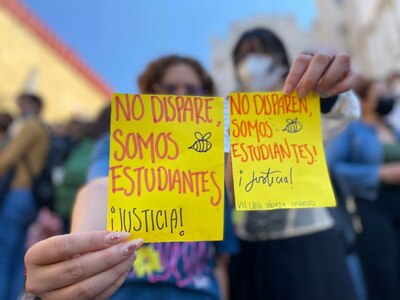 NO DISPARE,
SOMOS
ESTUDIANTES
¡JUSTICIA!
NO DISPAREN,
SOMOS
ESTUDIANTES!
¡Justicia!
ni una abeja menos